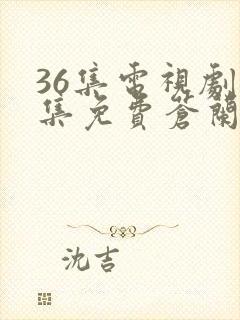 36集電視劇
集免費蒼蘭
沈吉